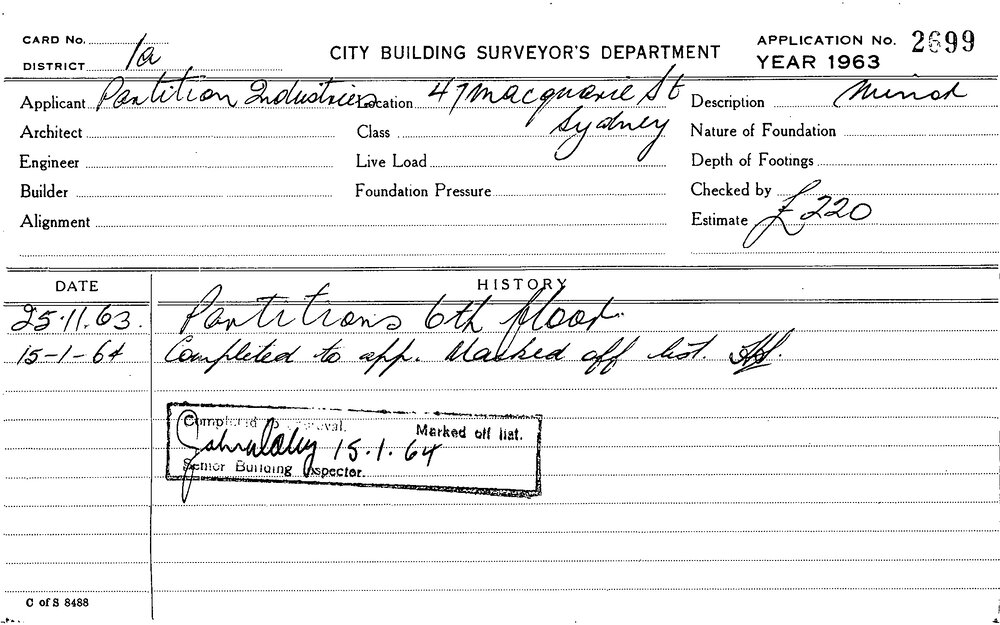 CARD No.
DISTRICT 1a
CITY BUILDING SURVEYOR'S DEPARTMENT
APPLICATION No. 2699
YEAR 1963
Applicant Partition Industries Location 47 Macquarie St Description Minor
Sydney
Architect Class Nature of Foundation
Engineer Live Load Depth of Footings
Builder Foundation Pressure Checked by
Alignment Estimate £220
DATE HISTORY
25.11.63. Partitions 6th floor.
15-1-64 Completed to app. Marked off list.
Completed to approval. Marked off list.
15.1.64
Senior Building Inspector.
C of S 8488